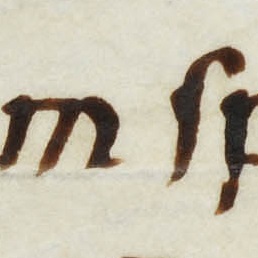 m ſp